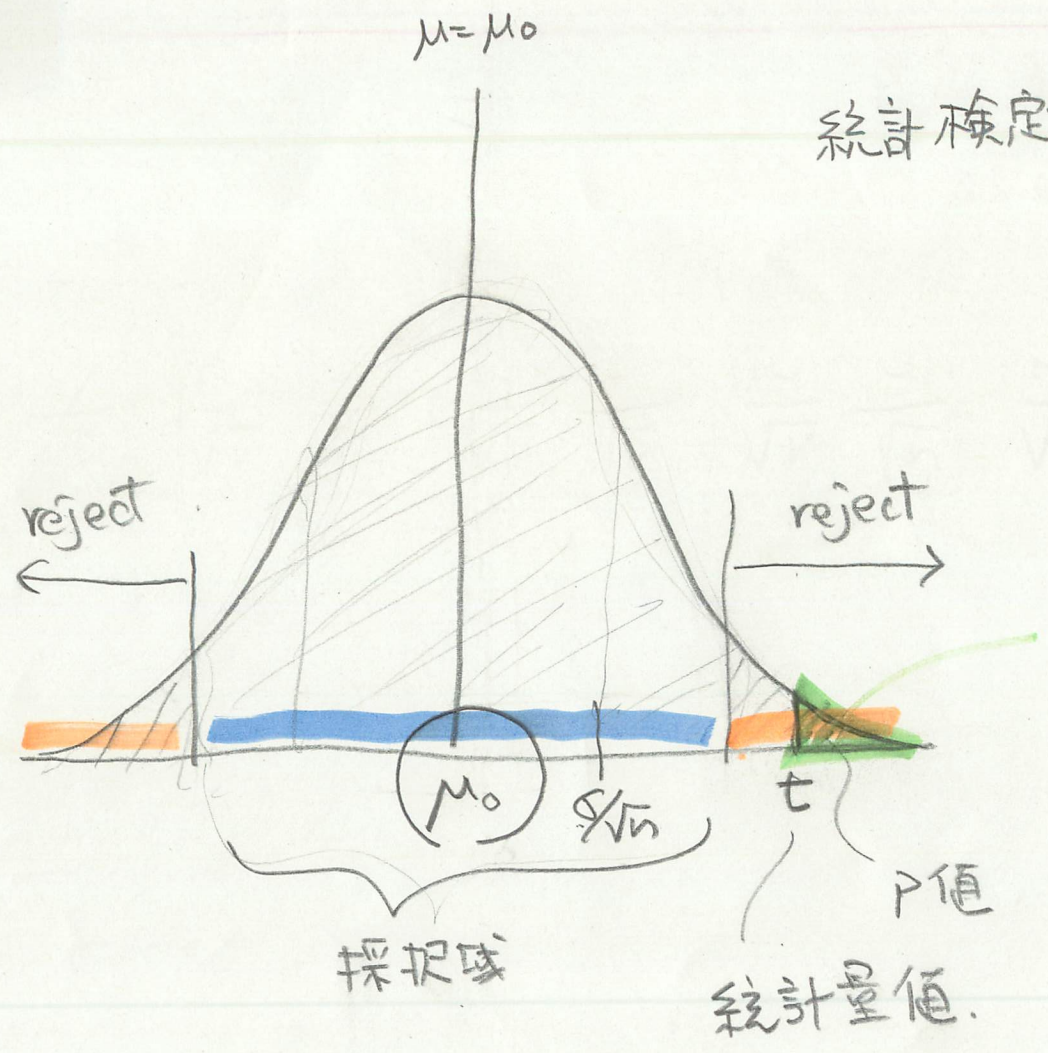 μ=μ0
統計検定
reject
reject
μ0
σ/√n
t
P値
採択域
統計量値.